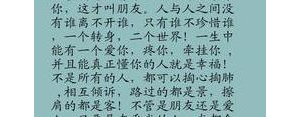 你，这才叫朋友。人与人之间没
有谁离不开谁，只有谁不珍惜谁
，一个转身，二个世界！一生中
能有一个爱你，疼你，牵挂你，
并且能真正懂你的人就是幸福！
不是所有的人，都可以掏心掏肺
，相互倾诉，路过的都是景，擦
肩的都是客！不管是朋友还是爱